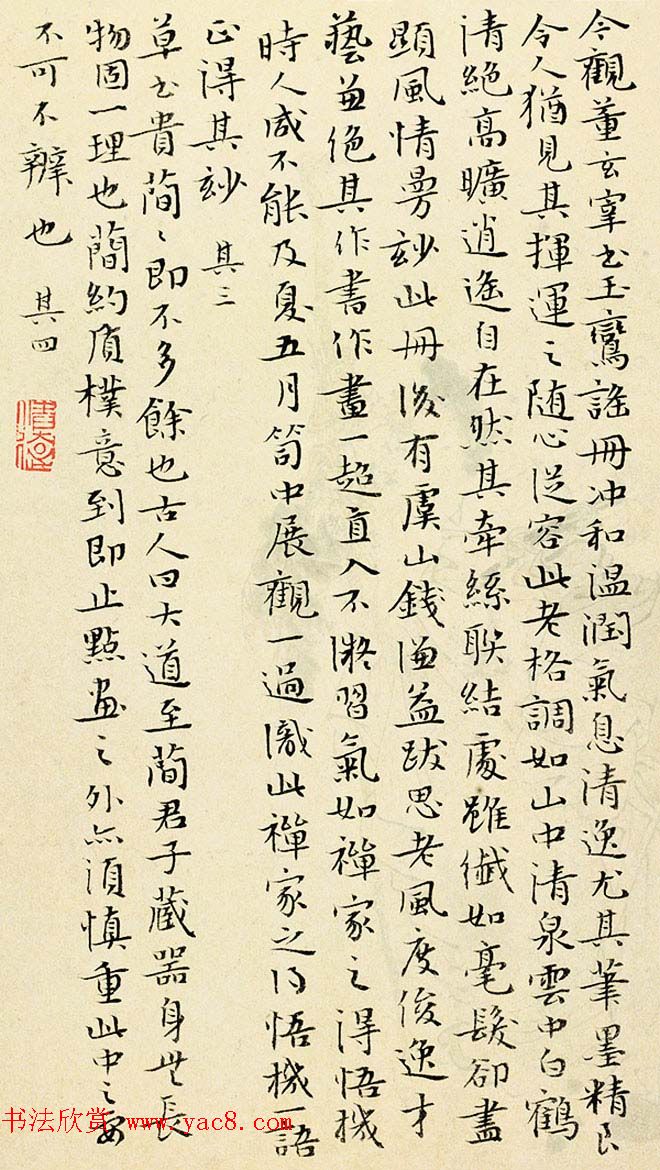 今觀董玄宰書玉鸞謠冊冲和溫潤氣息清逸尤其筆墨精良
令人猶見其揮運之随心從容此老格調如山中清泉雲中白鶴
清絕高曠逍遙自在然其牽絲联結處雖纖如毫髮卻盡
顕風情曼玅此冊後有虞山錢謙益跋思老風度俊逸才
藝並絕其作書作畫一超直入不濰習氣如禪家之得悟機
時人咸不能及夏五月笥中展觀一過識此禪家之得悟機一語
正得其玅 其三
草書貴蕳〻即不多餘也古人曰大道至蕳君子藏器身無長
物固一理也蕳約质樸意到即止點畫之外亦須慎重此中之要
不可不辨也 其四
书法欣赏 www.yac8.com